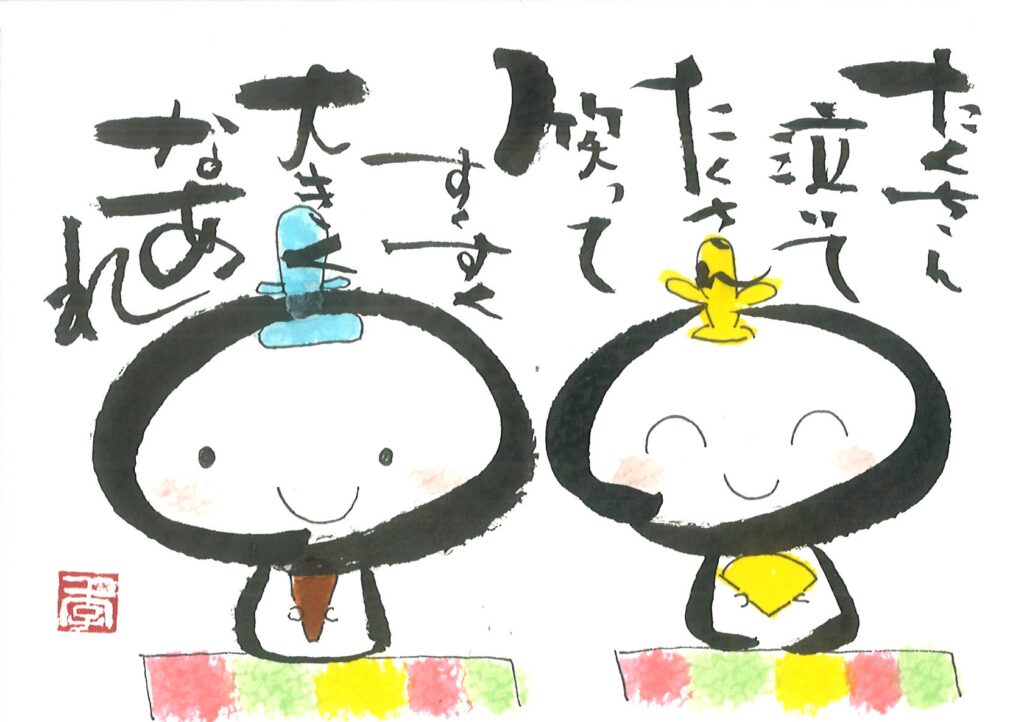 たくさん
泣いて
たくさん
笑って
すくすく
大きく
なあれ